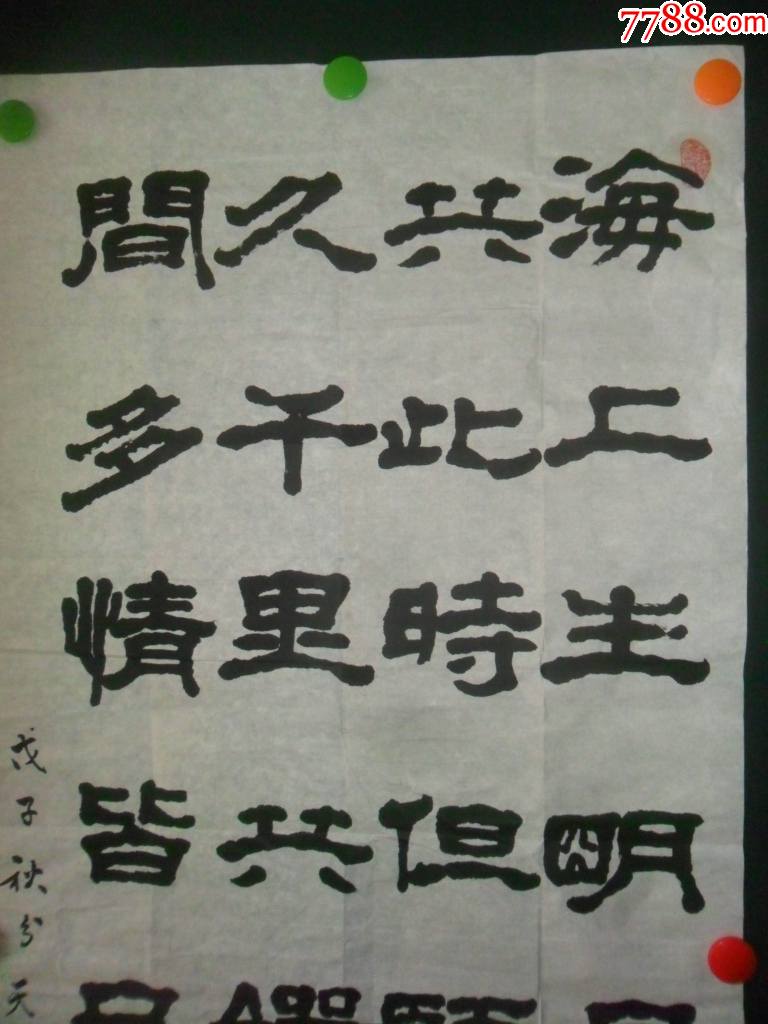 7788.com
海上生明
共此時但
久千里共
間多情皆
戊子秋分天